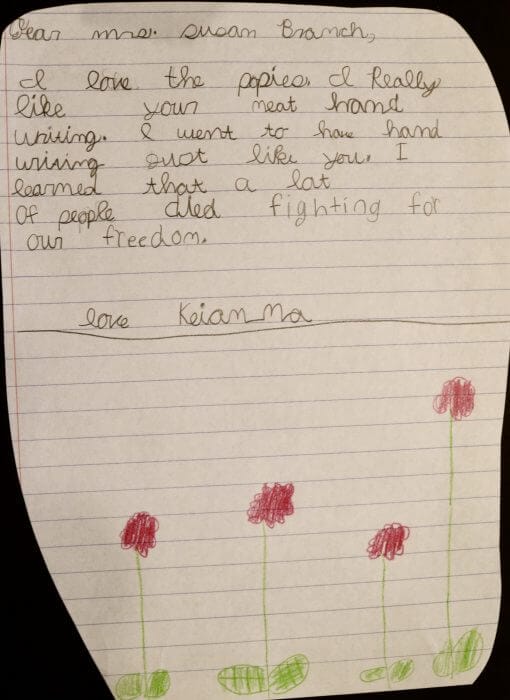 Dear mrs. Susan Branch,
I love the popies. I Really
like your neat hand
writing. I went to have hand
writing quot like you. I
learned that a lat
Of people died fighting for
our freedom.
love Keianna